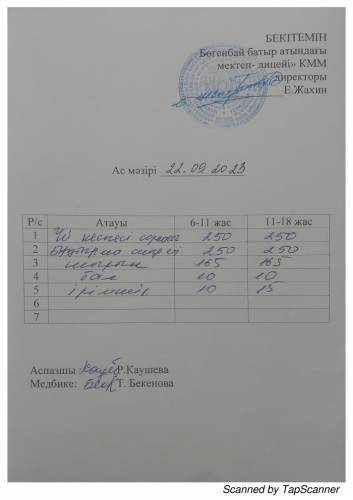 БЕКІТЕМІН
Бөгенбай батыр атындағы
мектеп- лицейі» КММ
директоры
Е.Жахин
Ас мәзірі 22.09 2023
Р/с Атауы 6-11 жас 11-18 жас
1 Үй кеспесі 250 250
2 250 250
3 шырын 165 165
4 бал 10 10
5 ірімшік 10 15
6
7
Аспазшы Р.Каушева
Медбике: Т. Бекенова
Scanned by TapScanner